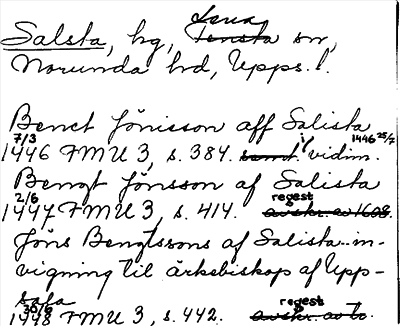 Lena
Salsta, hg, Tensta sn,
Norunda hd, Upps. l.
Benct Jönisson aff Salista
7/3 1446 25/7
1446 FMU 3, s. 384. i vidim.
Bengt Jönsson af Salista
2/6 regest
1447 FMU 3, s. 414. avskr. av 1608.
Jöns Bengtssons af Salista in-
vigning til ärkebiskop af Upp-
sala
30/6 regest
1448 FMU 3, s. 442. avskr. av to.